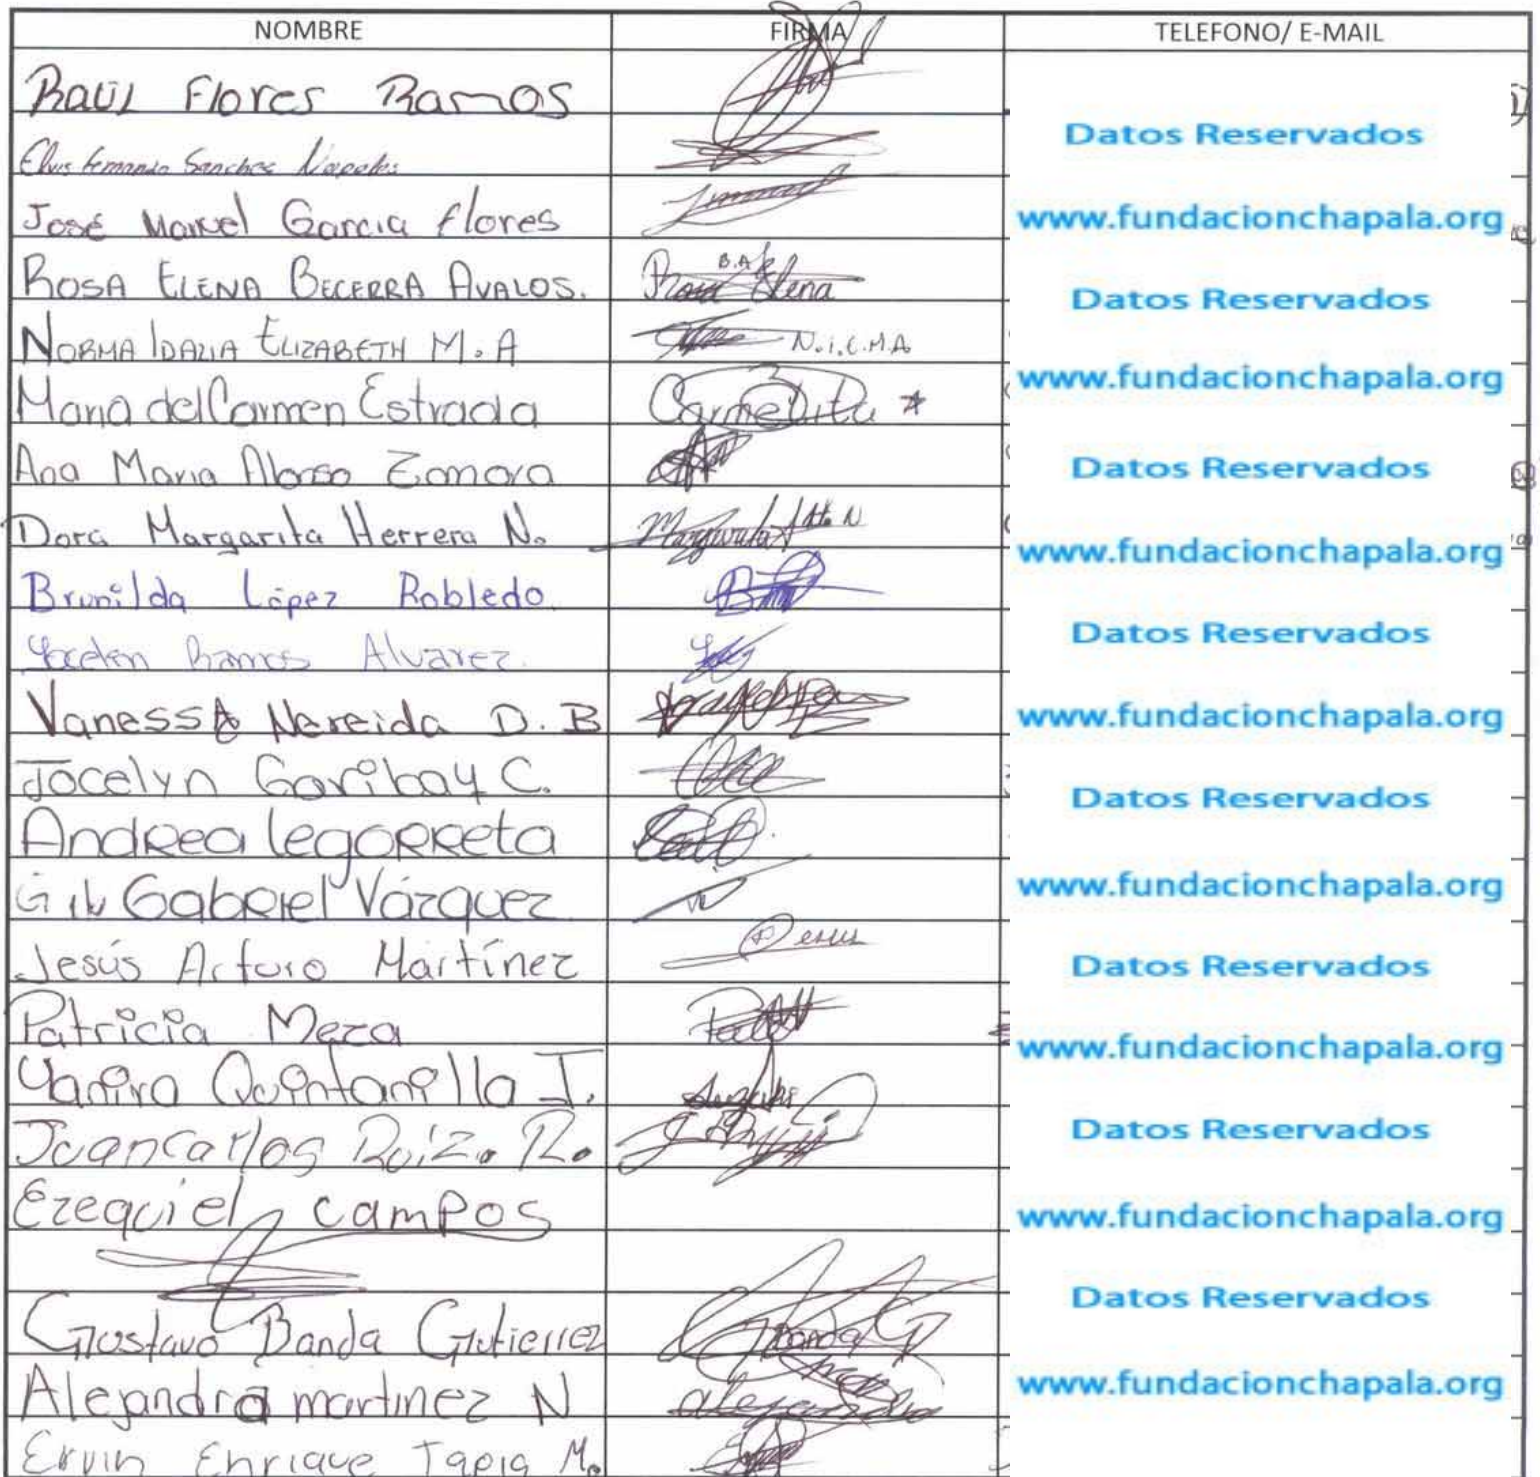 NOMBRE FIRMA TELEFONO/ E-MAIL
Raúl Flores Ramos
Datos Reservados
Elvis Fernando Sanchez Napoles
José Manuel Garcia flores
www.fundacionchapala.org
ROSA ELENA BECERRA AVALOS. B.A Rosa Elena
Datos Reservados
NORMA IDALIA ELIZABETH M. A N.I.E.M.A.
www.fundacionchapala.org
Maria del Carmen Estrada Carmelita
Ana Maria Alonso Zamora
Datos Reservados
Dora Margarita Herrera N. Margarita N
www.fundacionchapala.org
Brunilda López Robledo.
Datos Reservados
Yocelen Ramos Alvarez.
Vanessa Nereida D. B
www.fundacionchapala.org
Jocelyn Garibay C.
Datos Reservados
Andrea legorreta
Gabriel Vázquez
www.fundacionchapala.org
Jesús Arturo Martínez Jesus
Datos Reservados
Patricia Meza
www.fundacionchapala.org
Yanira Quintanilla J.
Juancarlos Ruiz. R.
Datos Reservados
Ezequiel campos
www.fundacionchapala.org
Datos Reservados
Gustavo Banda Gutierrez Banda G
Alejandra martinez N alejandra
www.fundacionchapala.org
Ervin Enrique Tapia M.